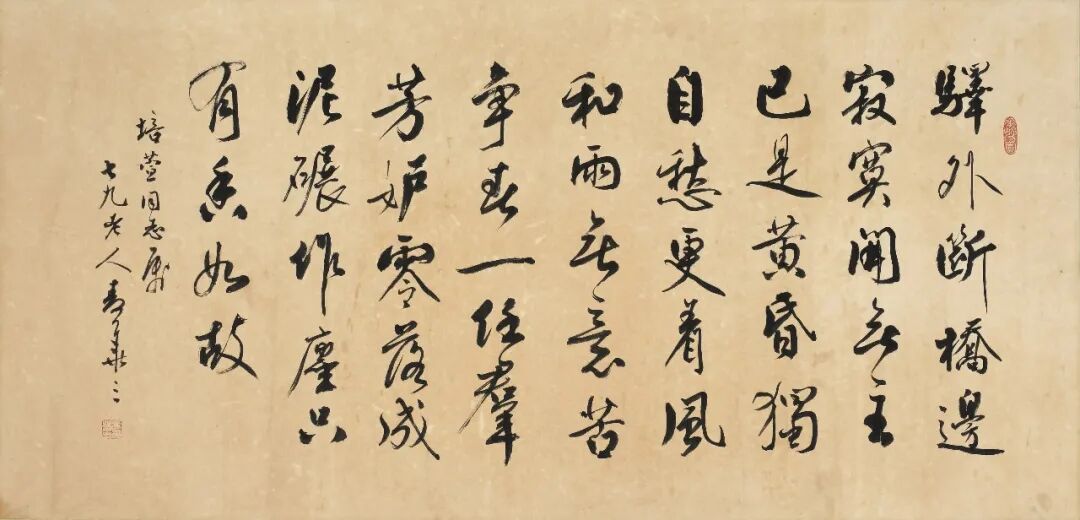 驛外斷橋邊
寂寞開無主
已是黄昏獨
自愁更着風
和雨無意苦
争春一任羣
芳妒零落成
泥碾作塵只
有香如故
培萱同志屬
七九老人